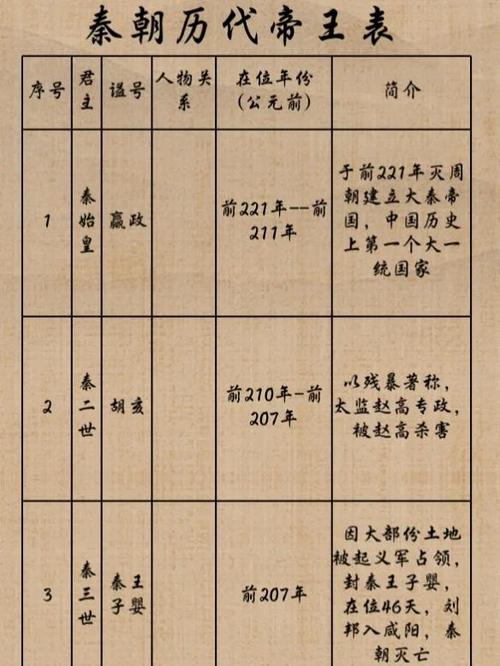 秦朝历代帝王表
序号
君主
谥号
人物关
系
在位年份
(公元前)
简介
1
秦
始
皇
嬴政
前221年--前
211年
于前221年灭周
朝建立大秦帝
国，中国历史
上第一个大一
统国家
2
秦
二
世
胡亥
前210年-前
207年
以残暴著称，
太监赵高专政，
被赵高杀害
3
秦
三
世
秦王
子婴
前207年
因大部份土地
被起义军占领，
封秦王子婴，
在位46天，刘
邦入咸阳，秦
朝灭亡